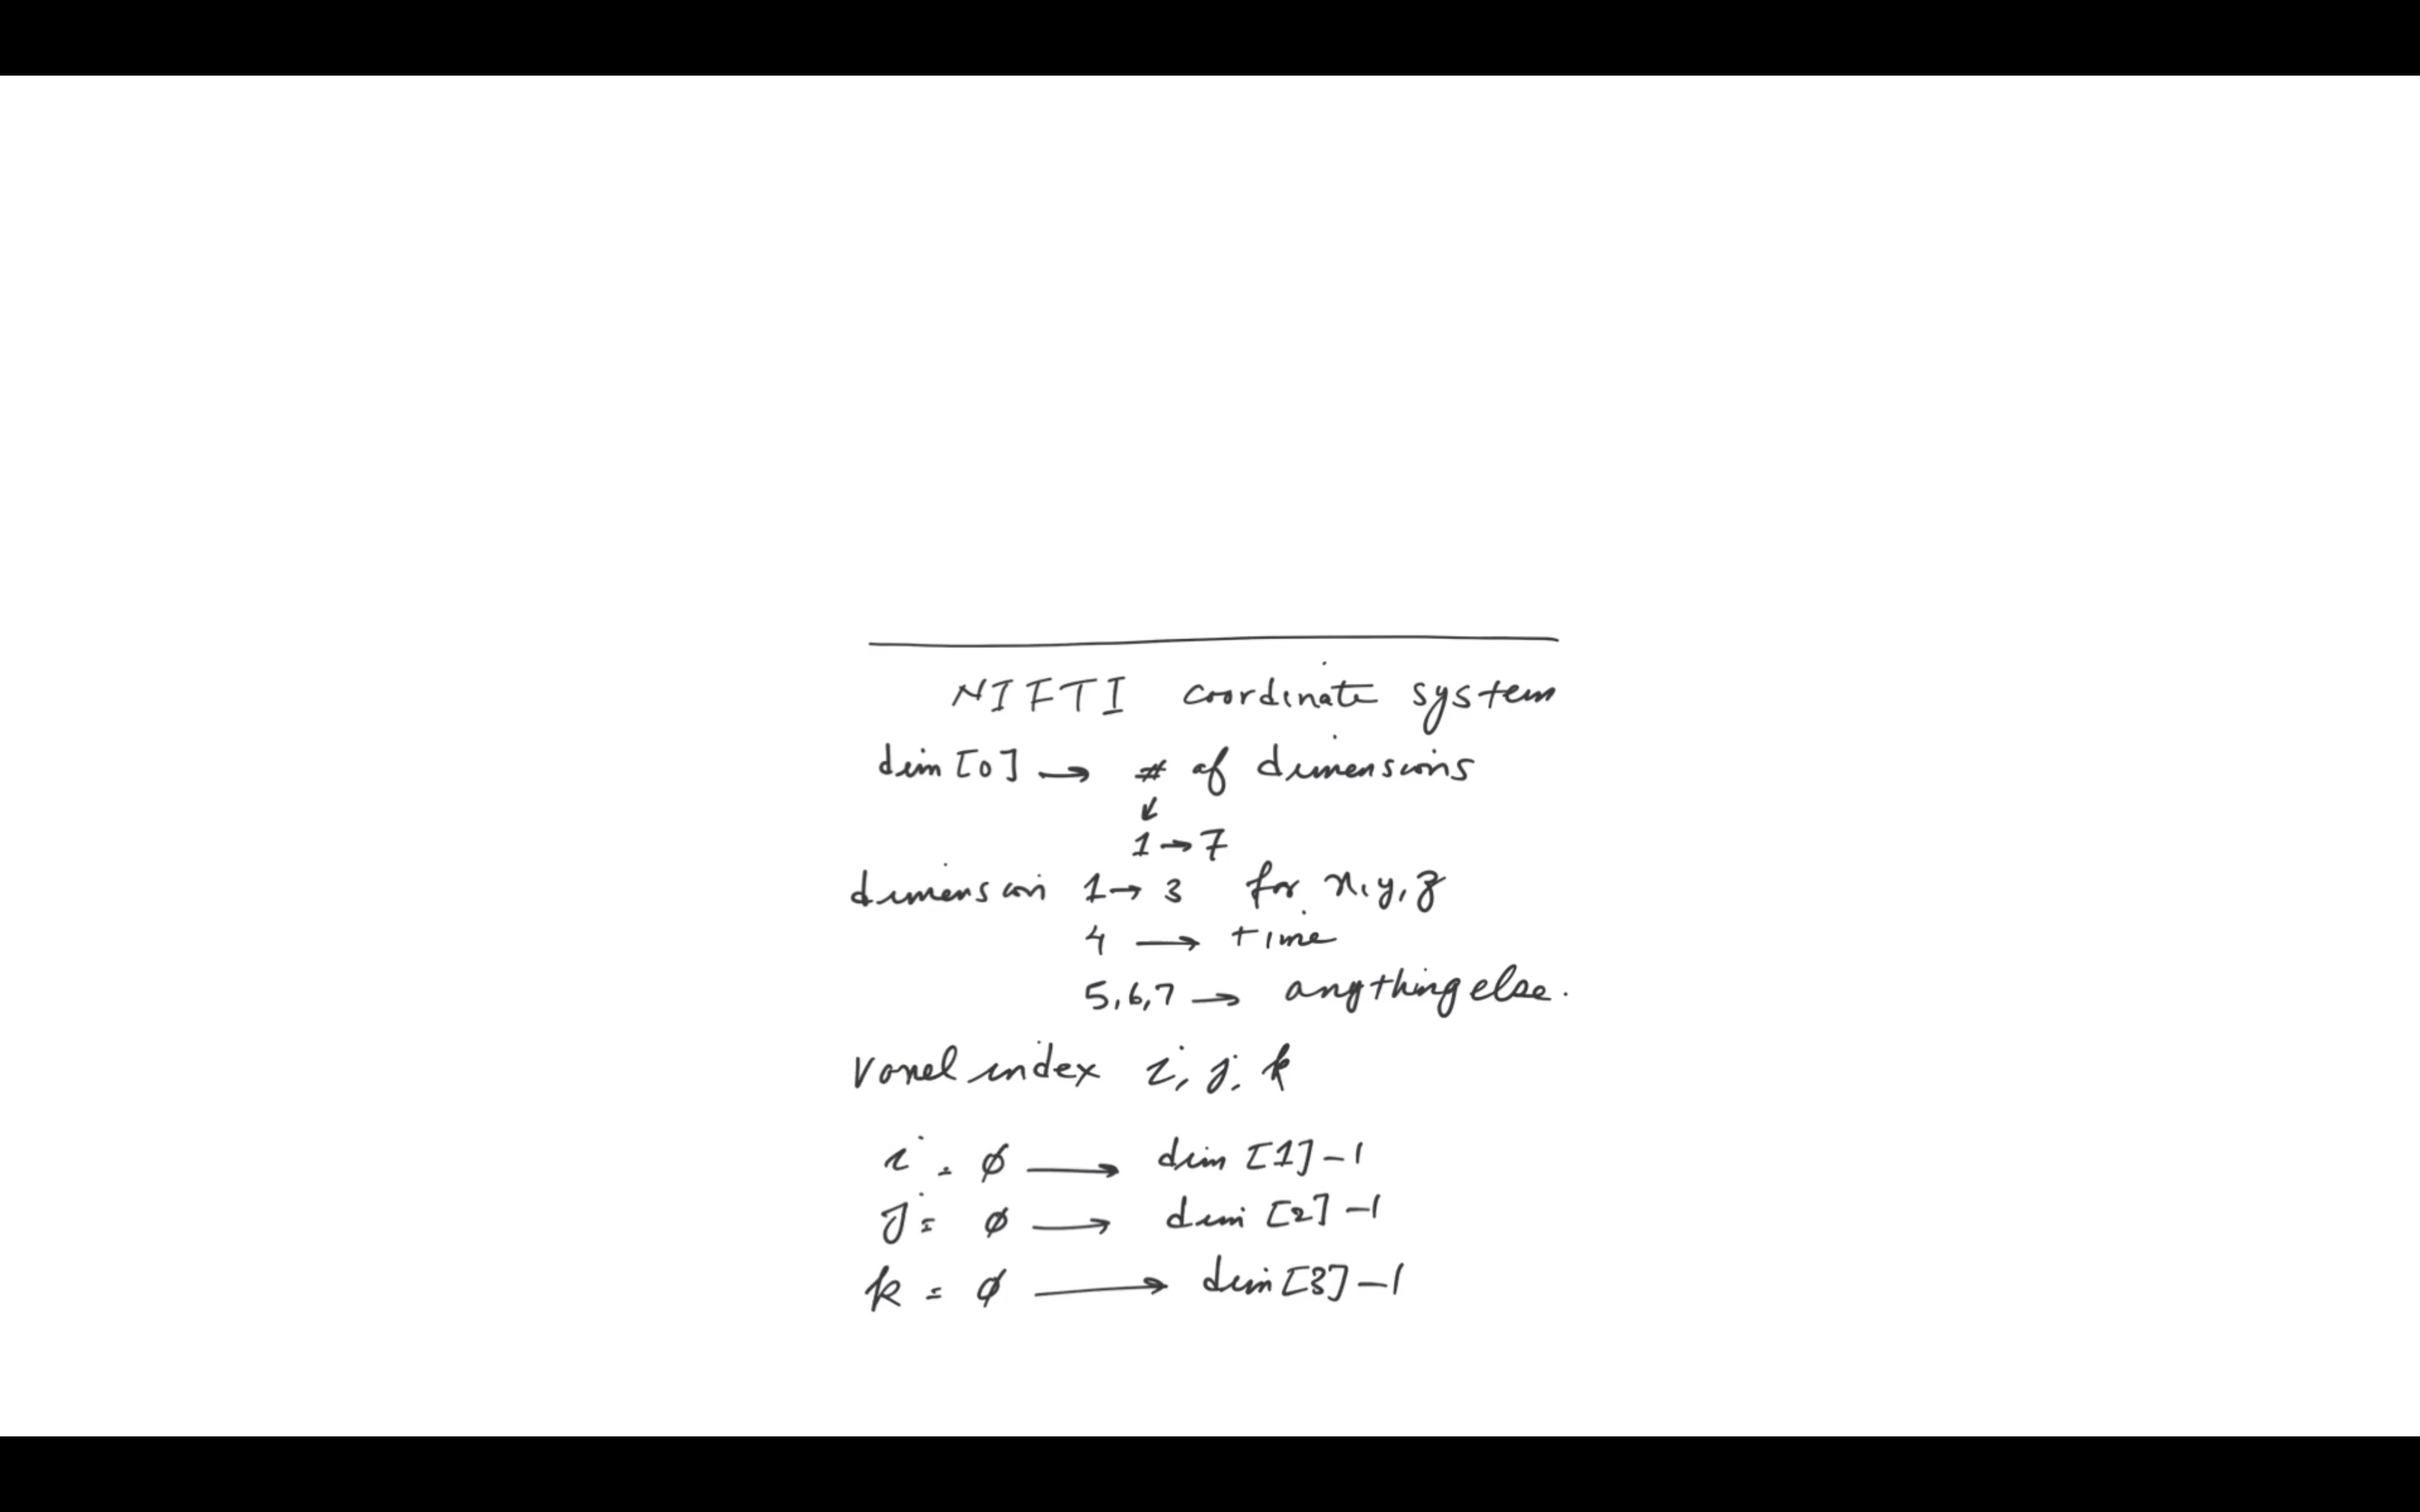 NIFTI coordinate system
dim [0] → # of dimensions
↓
1 → 7
dimension 1 → 3 for x, y, z
4 → time
5, 6, 7 → anything else.
Voxel index i, j, k
i = ∅ → dim [1] - 1
j = ∅ → dim [2] - 1
k = ∅ → dim [3] - 1